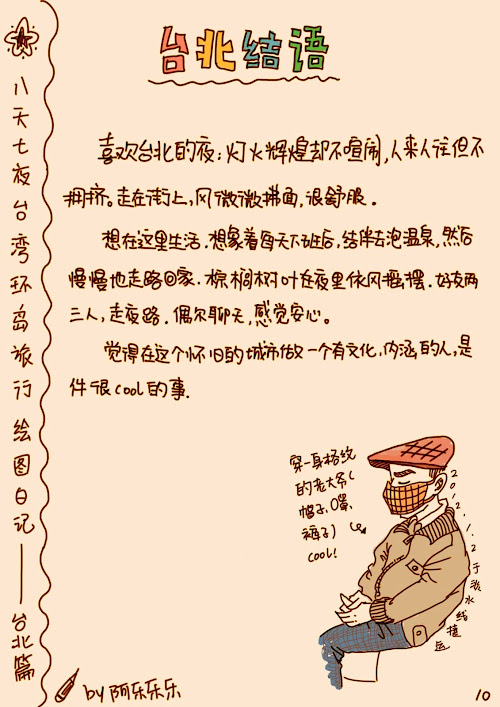 台北结语
八天七夜台湾环岛旅行绘图日记——台北篇
喜欢台北的夜：灯火辉煌却不喧闹，人来人往但不
拥挤。走在街上，风微微拂面，很舒服．
想在这里生活．想象着每天下班后，结伴去泡温泉，然后
慢慢地走路回家．棕榈树叶在夜里依风摇摆．好友两
三人，走夜路．偶尔聊天，感觉安心。
觉得在这个怀旧的城市做一个有文化，内涵的人，是
件很cool的事．
穿一身格纹
的老大爷（
帽子、口罩、
裤子）
cool！
2012.1.2于淡水线捷运
by阿乐乐乐
10